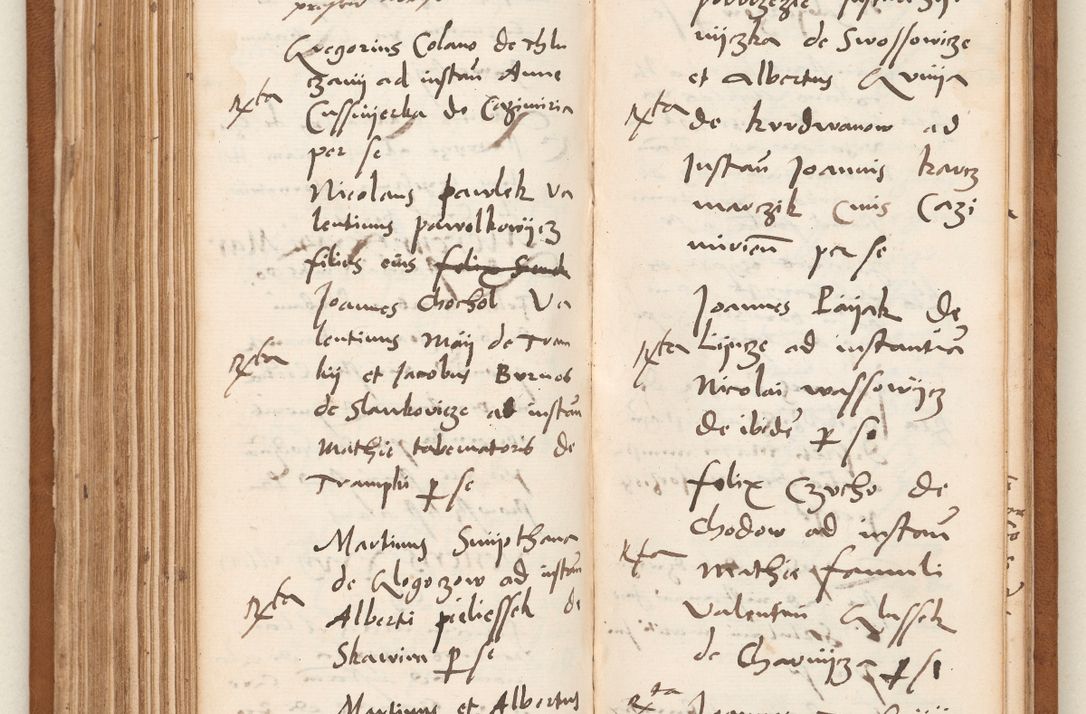 Gregorius Colano de Chlu
zanij ad instan Anne
Rxta
Cusscijerka de Cazimiria
per se
Nicolaus pawlek Va
lentinus pawolkowijcz
filius eius
Joannes Chochol Va
lentinus Maij de Tram
Rxta
kij et Jacobus Burnos
de Slankovicze ad instan
Mathie tabernatoris de
Trampki p se
Martinus Swijpthana
de Glogoczow ad instan
Rxta
Alberti pieliessek de
Skawina p se
Martinus et Albertus
nijczka de Swossowicze
et Albertus Gnija
Rxta
de kurdwanow ad
Instan Joannis karcz
marczik Civis Cazi
mirien per se
Joannes Paijak de
Rxta
Lipze ad instantia
Nicolai wassowijcz
de ibide p se
felix Czucho de
Chodow ad instan
Rxta
Mathie famuli
Valentini Glussek
de Charvijza p se
Rxta